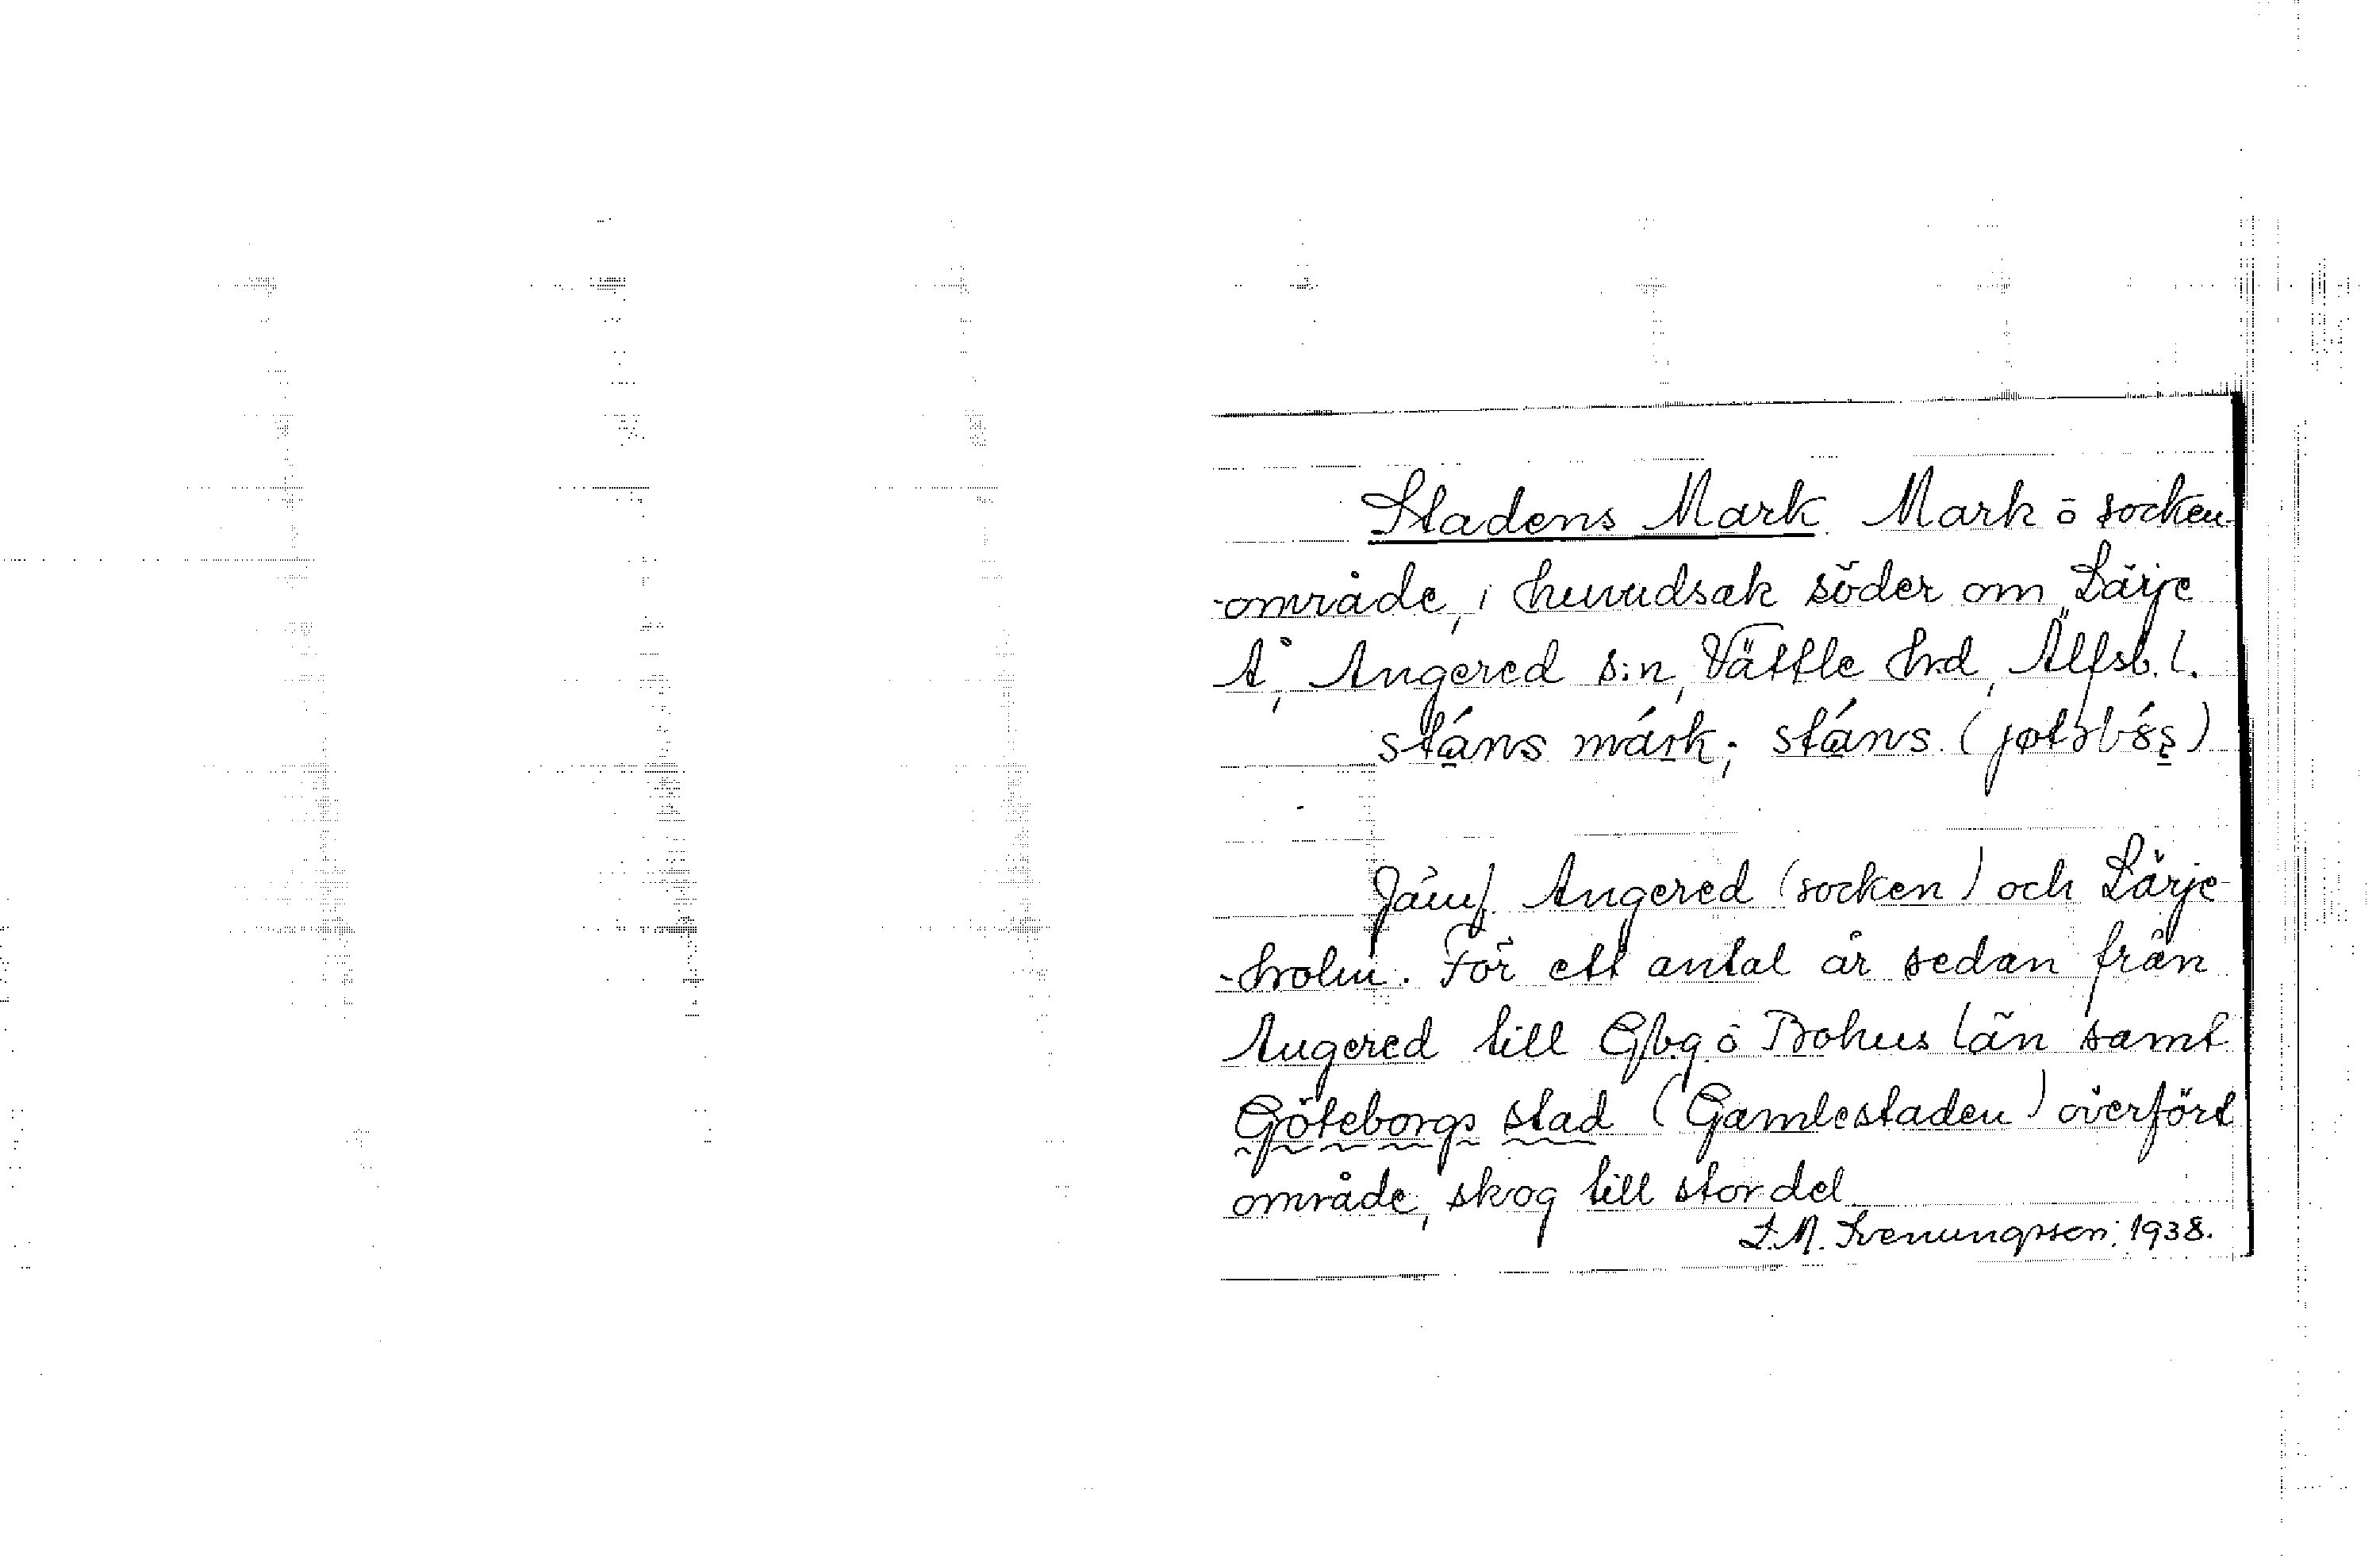 Stadens Mark Mark ō socken-
-område, i huvudsak söder om Lärje
Å, Angered s:n, Vättle hrd, Älfsb. l.
stáns márk; stáns
Jämf. Angered (socken) och Lärje-
-holm. För ett antal år sedan från
Angered till Gbg ō Bohus län samt
Göteborgs stad (Gamlestaden) överfört
område, skog till stor del
F. M. Svenungsson; 1938.